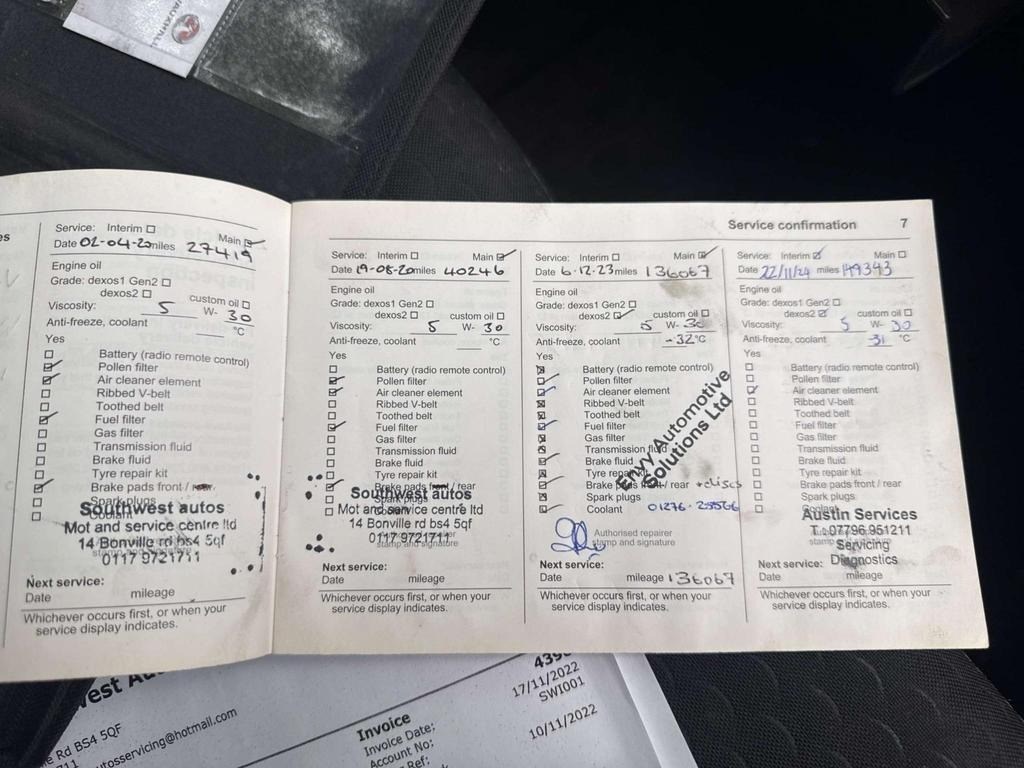 VAUXHALL
Service: Interim
Main
Date 02-04-20 miles 27419
Engine oil
Grade: dexos1 Gen2
dexos2
custom oil
Viscosity: 5 W- 30
Anti-freeze, coolant °C
Yes
Battery (radio remote control)
Pollen filter
Air cleaner element
Ribbed V-belt
Toothed belt
Fuel filter
Gas filter
Transmission fluid
Brake fluid
Tyre repair kit
Brake pads front / rear
Spark plugs
Coolant
Southwest autos
Mot and service centre ltd
14 Bonville rd bs4 5qf
0117 9721711
stamp and signature
Next service:
Date mileage
Whichever occurs first, or when your
service display indicates.
Service confirmation 7
Service: Interim Main
Date 19-08-20 miles 40246
Engine oil
Grade: dexos1 Gen2
dexos2 custom oil
Viscosity: 5 W- 30
Anti-freeze, coolant °C
Yes
Battery (radio remote control)
Pollen filter
Air cleaner element
Ribbed V-belt
Toothed belt
Fuel filter
Gas filter
Transmission fluid
Brake fluid
Tyre repair kit
Brake pads front / rear
Spark plugs
Southwest autos
Mot and service centre ltd
14 Bonville rd bs4 5qf
0117 9721711
stamp and signature
Next service:
Date mileage
Whichever occurs first, or when your
service display indicates.
Service: Interim Main
Date 6.12.23 miles 136067
Engine oil
Grade: dexos1 Gen2
dexos2 custom oil
Viscosity: 5 W- 30
Anti-freeze, coolant -32°C
Yes
Battery (radio remote control)
Pollen filter
Air cleaner element
Ribbed V-belt
Toothed belt
Fuel filter
Gas filter
Transmission fluid
Brake fluid
Tyre repair kit
Brake pads front / rear + discs
Spark plugs
Coolant
Automotive
Solutions Ltd
Authorised repairer
stamp and signature
Next service:
Date mileage 136067
Whichever occurs first, or when your
service display indicates.
Service: Interim Main
Date 22/11/24 miles 149393
Engine oil
Grade: dexos1 Gen2
dexos2 custom oil
Viscosity: 5 W- 30
Anti-freeze, coolant -31 °C
Yes
Battery (radio remote control)
Pollen filter
Air cleaner element
Ribbed V-belt
Toothed belt
Fuel filter
Gas filter
Transmission fluid
Brake fluid
Tyre repair kit
Brake pads front / rear
Spark plugs
Coolant
Austin Services
T: 07796 951211
Servicing
Diagnostics
Next service:
Date mileage
Whichever occurs first, or when your
service display indicates.
Rd BS4 5QF
711
utosservicing@hotmail.com
Invoice
Invoice Date: 17/11/2022
Account No: SWI001
Ref: 10/11/2022